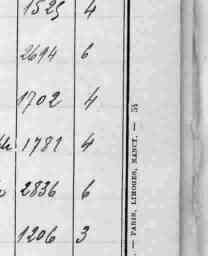 1525 4
2694 6
1702 4
1781 4
2836 6
1206 3
. — PARIS, LIMOGES, NANCY. — 54